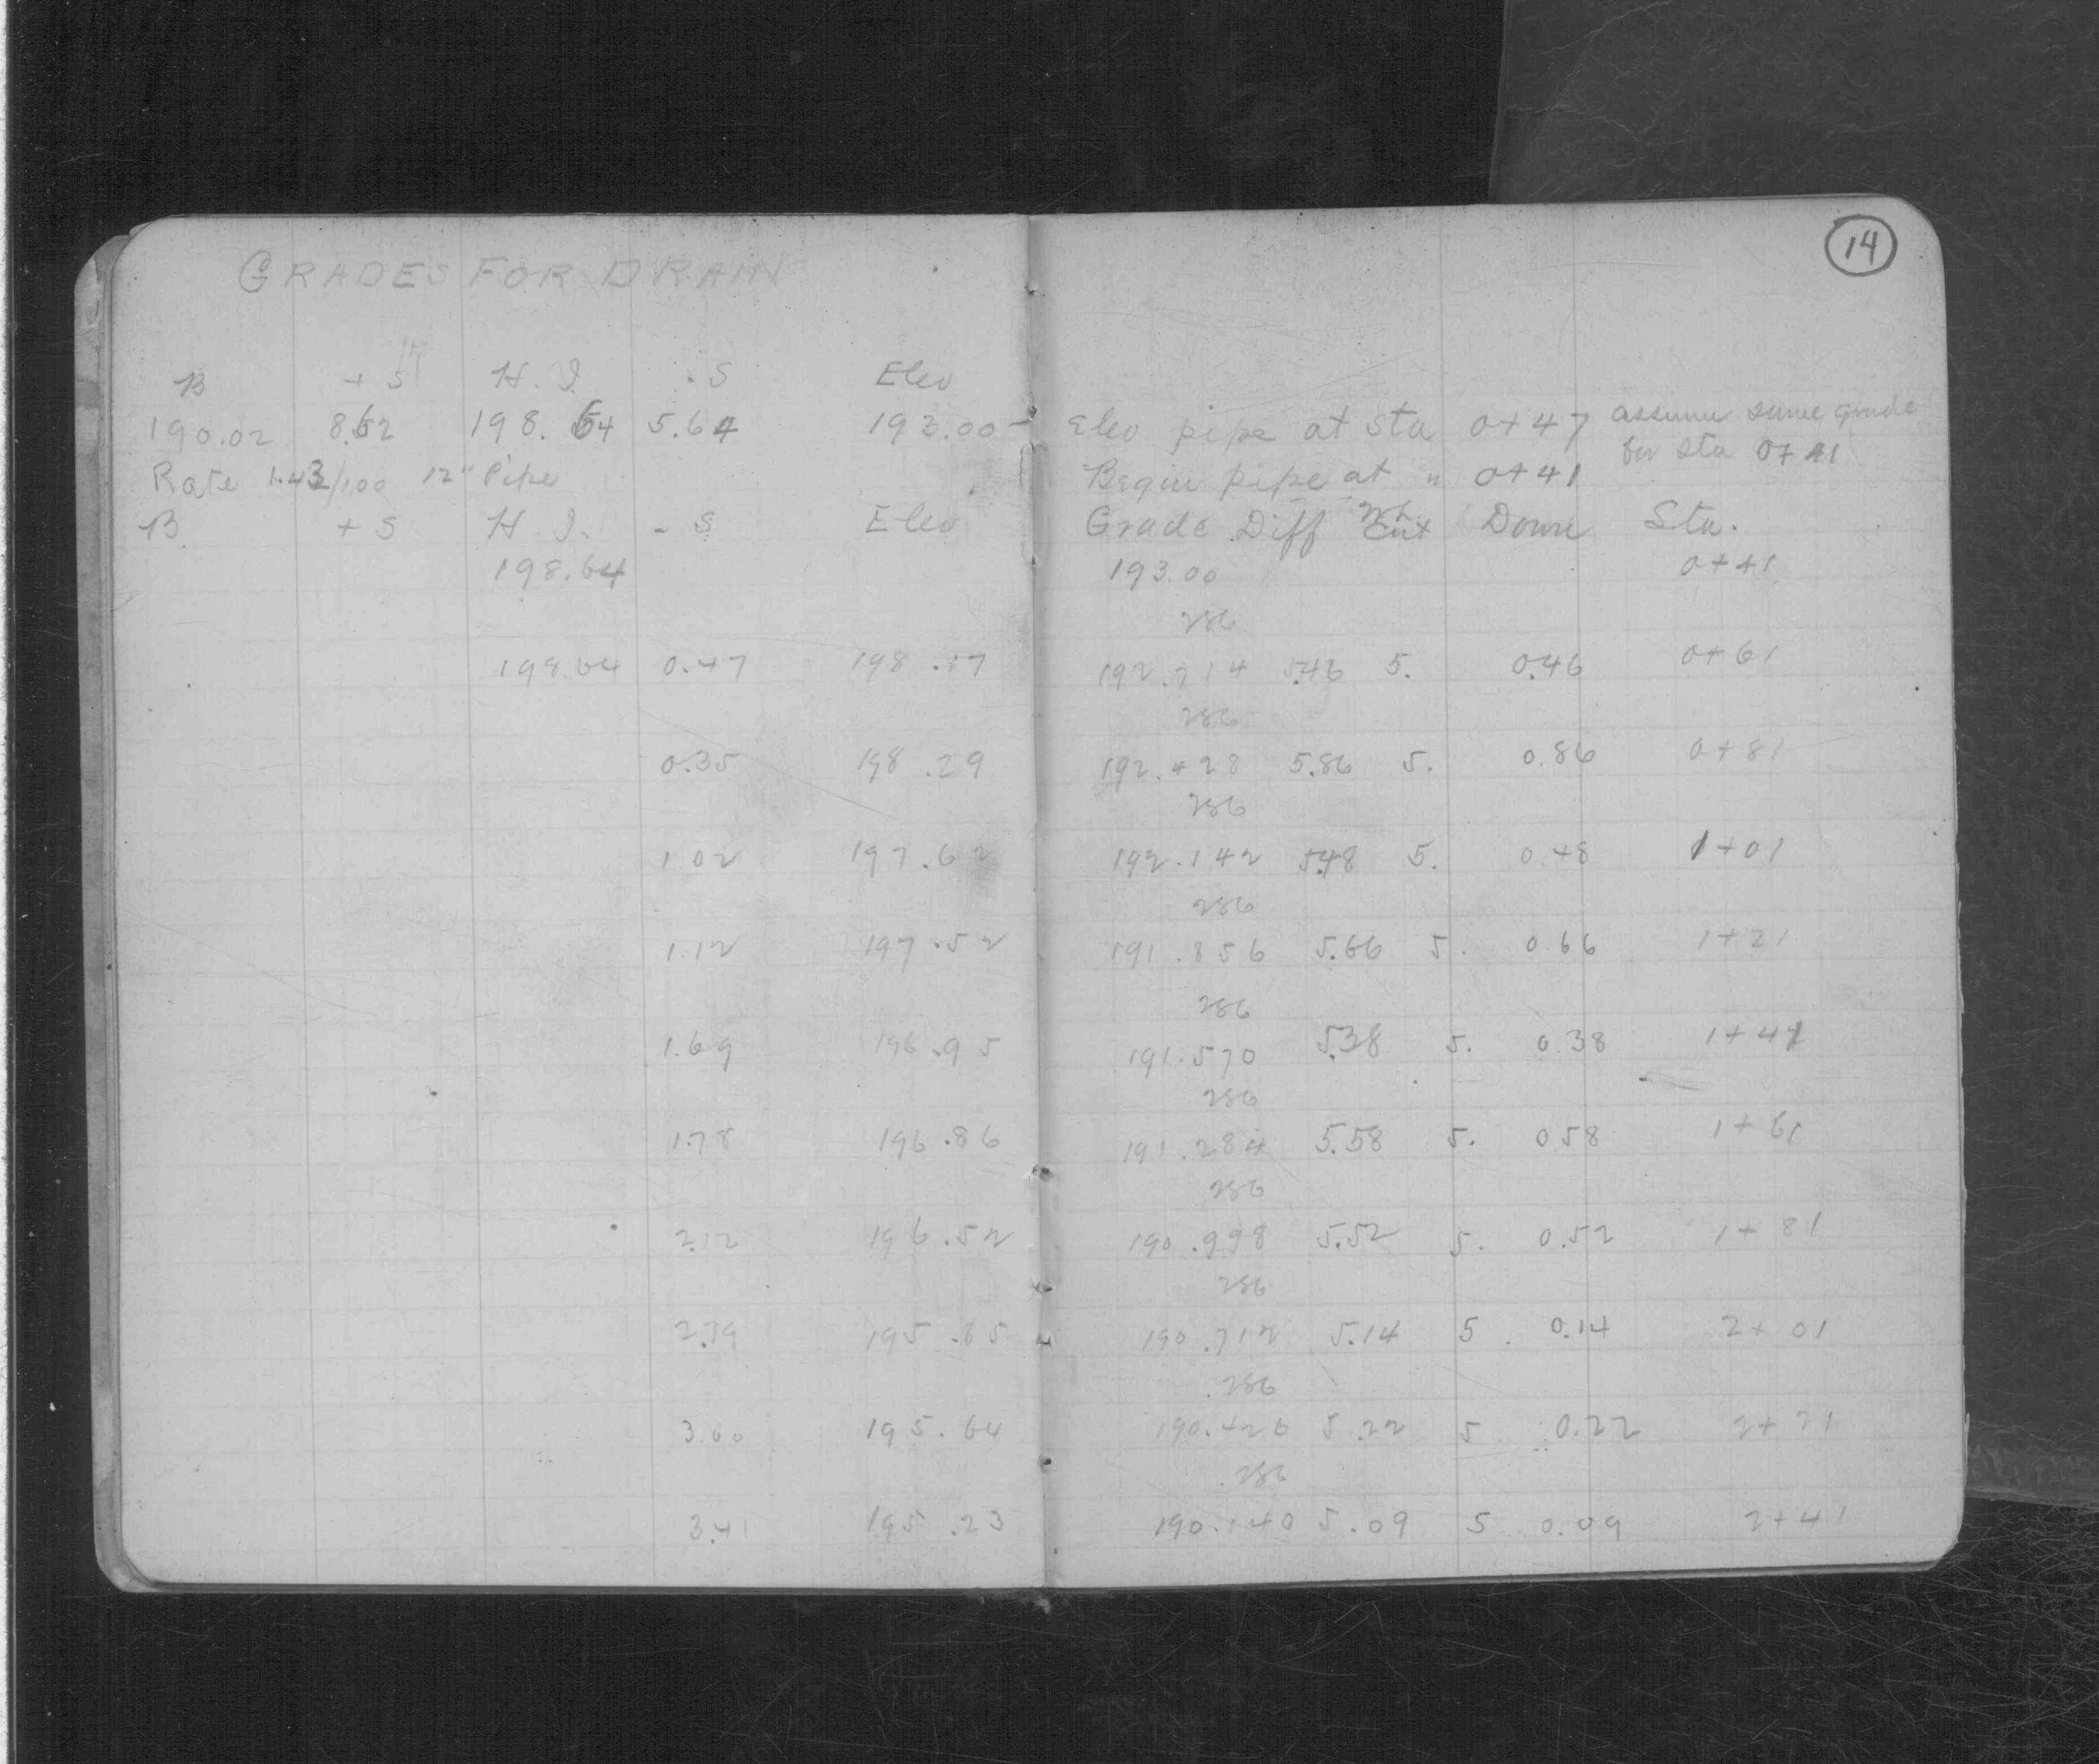 14
GRADES FOR DRAIN
B + S H. I. - S Elev
190.02 8.62 198.64 5.64 193.00 - Elev pipe at Sta 0+47 assume same grade
for sta 0+41
Rate 1.43/100 12" Pipe Begin pipe at " 0+41
B + S H. I. - S Elev Grade Diff Cut Down Sta.
198.64 193.00 0+41
286
198.64 0.47 198.17 192.714 5.46 5. 0.46 0+61
286
0.35 198.29 192.428 5.86 5. 0.86 0+81
286
1.02 197.62 192.142 5.48 5. 0.48 1+01
286
1.12 197.52 191.856 5.66 5. 0.66 1+21
286
1.69 196.95 191.570 5.38 5. 0.38 1+41
286
1.78 196.86 191.284 5.58 5. 0.58 1+61
286
2.12 196.52 190.998 5.52 5. 0.52 1+81
286
2.79 195.85 190.712 5.14 5. 0.14 2+01
.286
3.00 195.64 190.426 5.22 5 0.22 2+21
.286
3.41 195.23 190.140 5.09 5 0.09 2+41